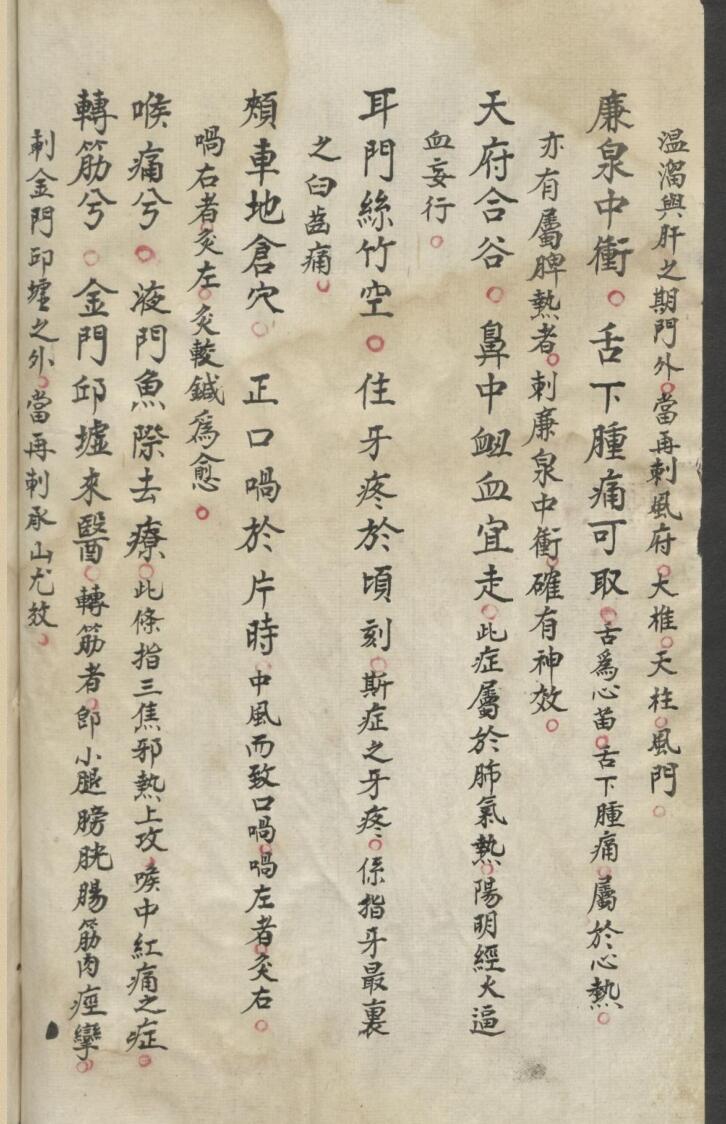 温溜與肝之期門外。當再刺風府。大椎。天柱。風門。
廉泉中衝。舌下腫痛可取。舌爲心苗。舌下腫痛。屬於心熱。
亦有屬脾熱者。刺廉泉中衝。確有神效。
天府合谷。鼻中衄血宜走。此症屬於肺氣熱。陽明經火逼
血妄行。
耳門絲竹空。住牙疼於頃刻。斯症之牙疼。係指牙最裏
之臼齒痛。
頰車地倉穴。正口喎於片時。中風而致口喎。喎左者灸右。
喎右者灸左。灸較鍼爲愈。
喉痛兮。液門魚際去療。此條指三焦邪熱上攻。喉中紅痛之症。
轉筋兮。金門邱墟來醫。轉筋者。卽小腿膀胱腸筋肉痙攣。
刺金門邱墟之外。當再刺承山尤效。